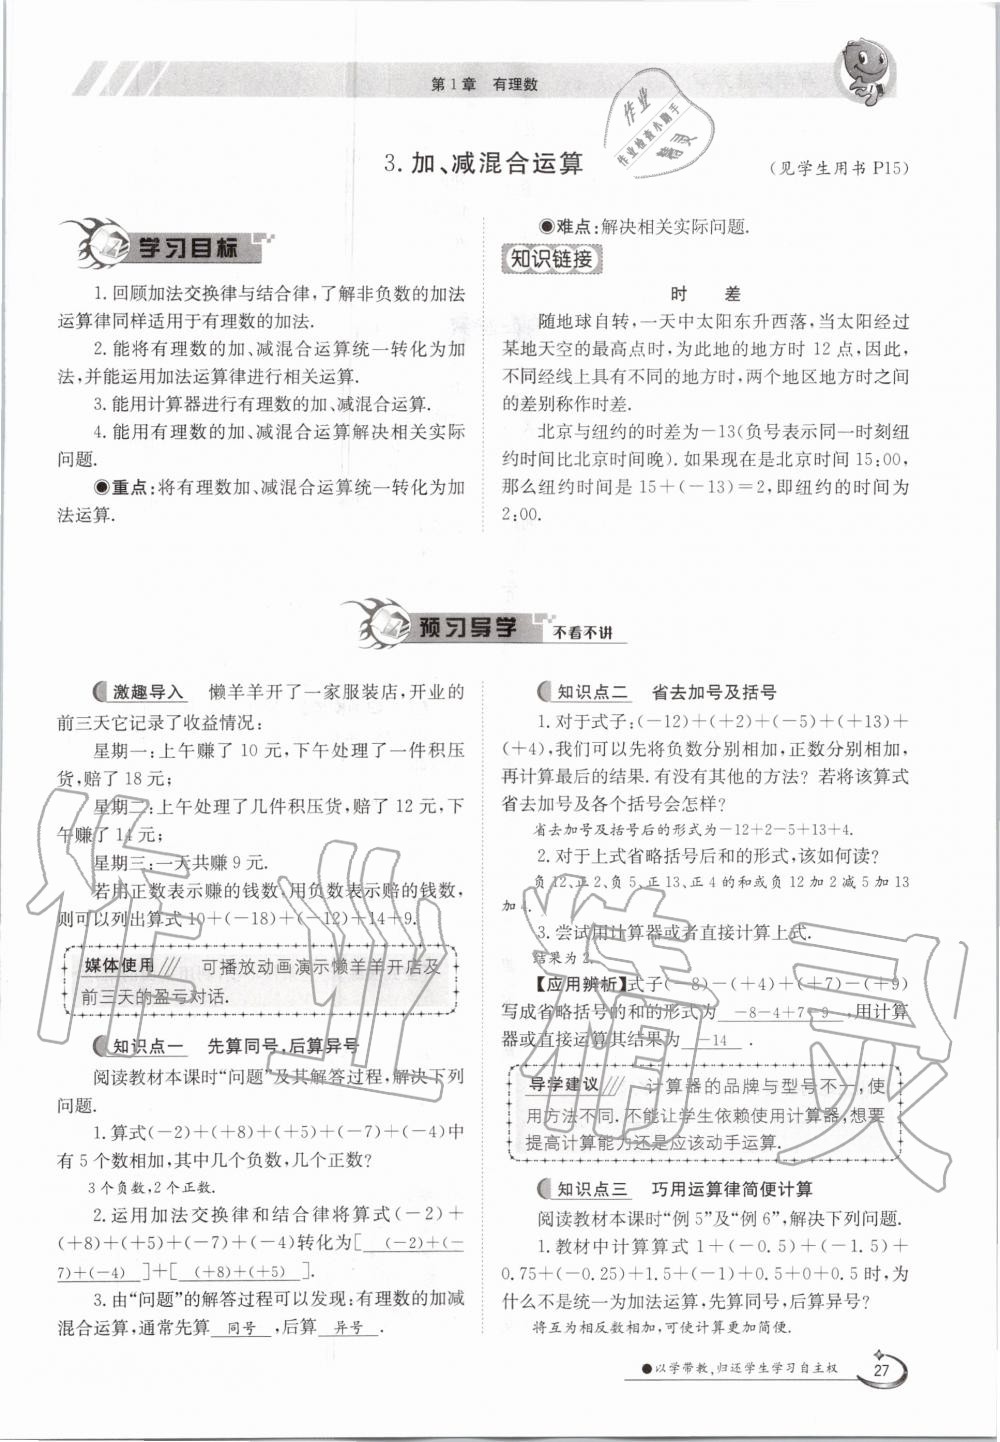 第1章 有理数
作业
作业检查小助手
精灵
3.加、减混合运算
(见学生用书 P15)
学习目标
1.回顾加法交换律与结合律,了解非负数的加法
运算律同样适用于有理数的加法.
2.能将有理数的加、减混合运算统一转化为加
法,并能运用加法运算律进行相关运算.
3.能用计算器进行有理数的加、减混合运算.
4.能用有理数的加、减混合运算解决相关实际
问题.
●重点:将有理数加、减混合运算统一转化为加
法运算.
●难点:解决相关实际问题.
知识链接
时 差
随地球自转,一天中太阳东升西落,当太阳经过
某地天空的最高点时,为此地的地方时 12 点,因此,
不同经线上具有不同的地方时,两个地区地方时之间
的差别称作时差.
北京与纽约的时差为-13(负号表示同一时刻纽
约时间比北京时间晚). 如果现在是北京时间 15:00,
那么纽约时间是 15+(-13)=2,即纽约的时间为
2:00.
预习导学 不看不讲
激趣导入 懒羊羊开了一家服装店,开业的
前三天它记录了收益情况:
星期一:上午赚了 10 元,下午处理了一件积压
货,赔了 18 元;
星期二:上午处理了几件积压货,赔了 12 元,下
午赚了 14 元;
星期三:一天共赚 9 元.
若用正数表示赚的钱数,用负数表示赔的钱数,
则可以列出算式 10+(-18)+(-12)+14+9.
媒体使用 可播放动画演示懒羊羊开店及
前三天的盈亏对话.
知识点一 先算同号,后算异号
阅读教材本课时“问题”及其解答过程,解决下列
问题.
1.算式(-2)+(+8)+(+5)+(-7)+(-4)中
有 5 个数相加,其中几个负数,几个正数?
3 个负数,2 个正数.
2.运用加法交换律和结合律将算式(-2)+
(+8)+(+5)+(-7)+(-4)转化为[ (-2)+(-
7)+(-4) ]+[ (+8)+(+5) ].
3.由“问题”的解答过程可以发现:有理数的加减
混合运算,通常先算 同号 ,后算 异号 .
知识点二 省去加号及括号
1.对于式子:(-12)+(+2)+(-5)+(+13)+
(+4),我们可以先将负数分别相加,正数分别相加,
再计算最后的结果.有没有其他的方法? 若将该算式
省去加号及各个括号会怎样?
省去加号及括号后的形式为-12+2-5+13+4.
2.对于上式省略括号后和的形式,该如何读?
负 12、正 2、负 5、正 13、正 4 的和或负 12 加 2 减 5 加 13
加 4.
3.尝试用计算器或者直接计算上式.
结果为 2.
【应用辨析】式子(-8)-(+4)+(+7)-(+9)
写成省略括号的和的形式为 -8-4+7-9 ,用计算
器或直接运算其结果为 -14 .
导学建议 计算器的品牌与型号不一,使
用方法不同.不能让学生依赖使用计算器,想要
提高计算能力还是应该动手运算.
知识点三 巧用运算律简便计算
阅读教材本课时“例 5”及“例 6”,解决下列问题.
1.教材中计算算式 1+(-0.5)+(-1.5)+
0.75+(-0.25)+1.5+(-1)+0.5+0+0.5 时,为
什么不是统一为加法运算,先算同号,后算异号?
将互为相反数相加,可使计算更加简便.
●以学带教,归还学生学习自主权
27
作业精灵